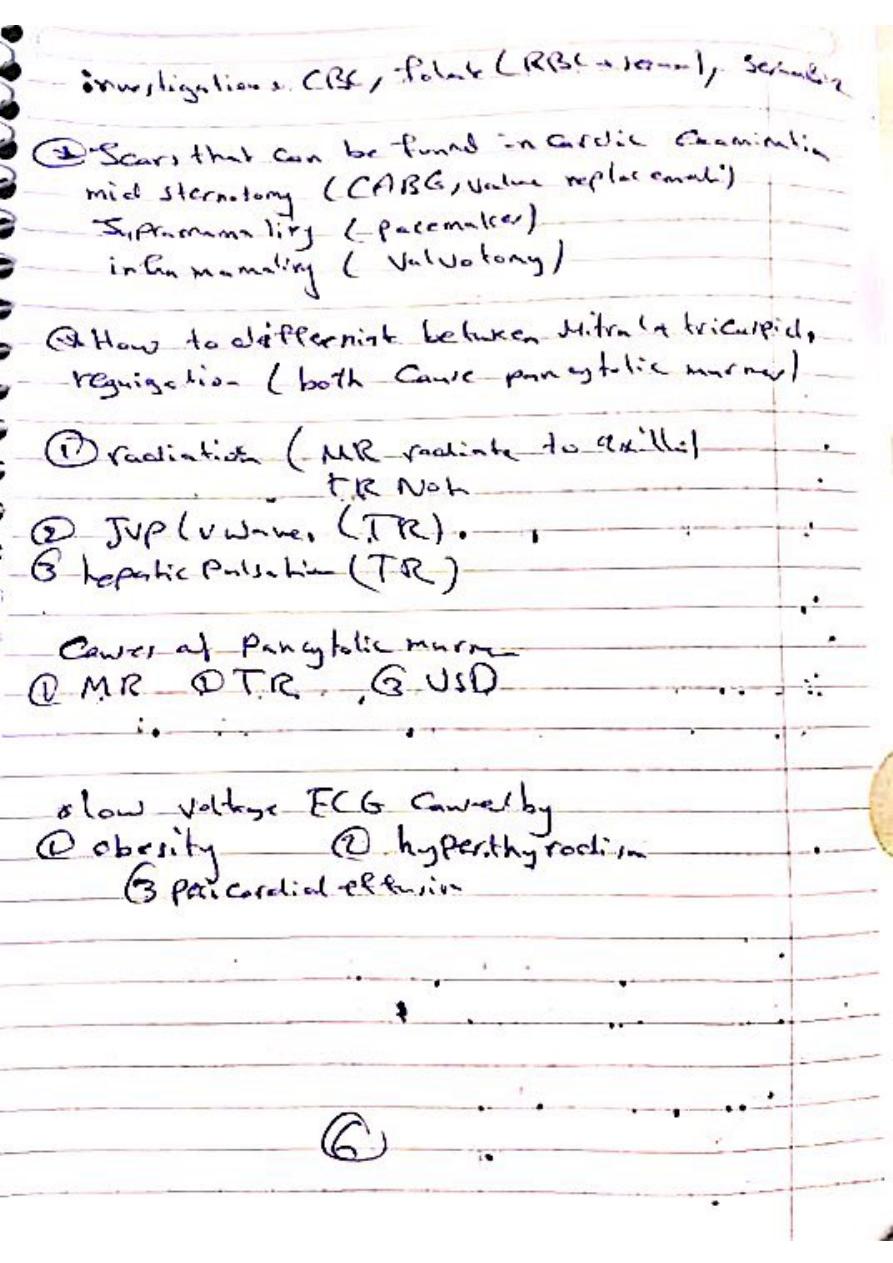 investigations CBC, folate (RBC + serum), 
* Scars that can be found in cardic examination
mid sternotomy (CABG, valve replacement)
Supramamaliry (pacemaker)
infra mamaliry ( Valvotomy)
* How to differnist between Mitral & tricuspid,
reguigation ( both Cause pancytolic murmer)
① radiation ( MR radiate to axilla)
TR Not
② JVP (v wave, (TR).
3 hepatic Pulsation (TR)
Causes of Pancytolic murm
① MR ② T.R. ③ VSD
* low voltage ECG Caused by
① obesity ② hyperthyrodism
③ pericardial effusion
6